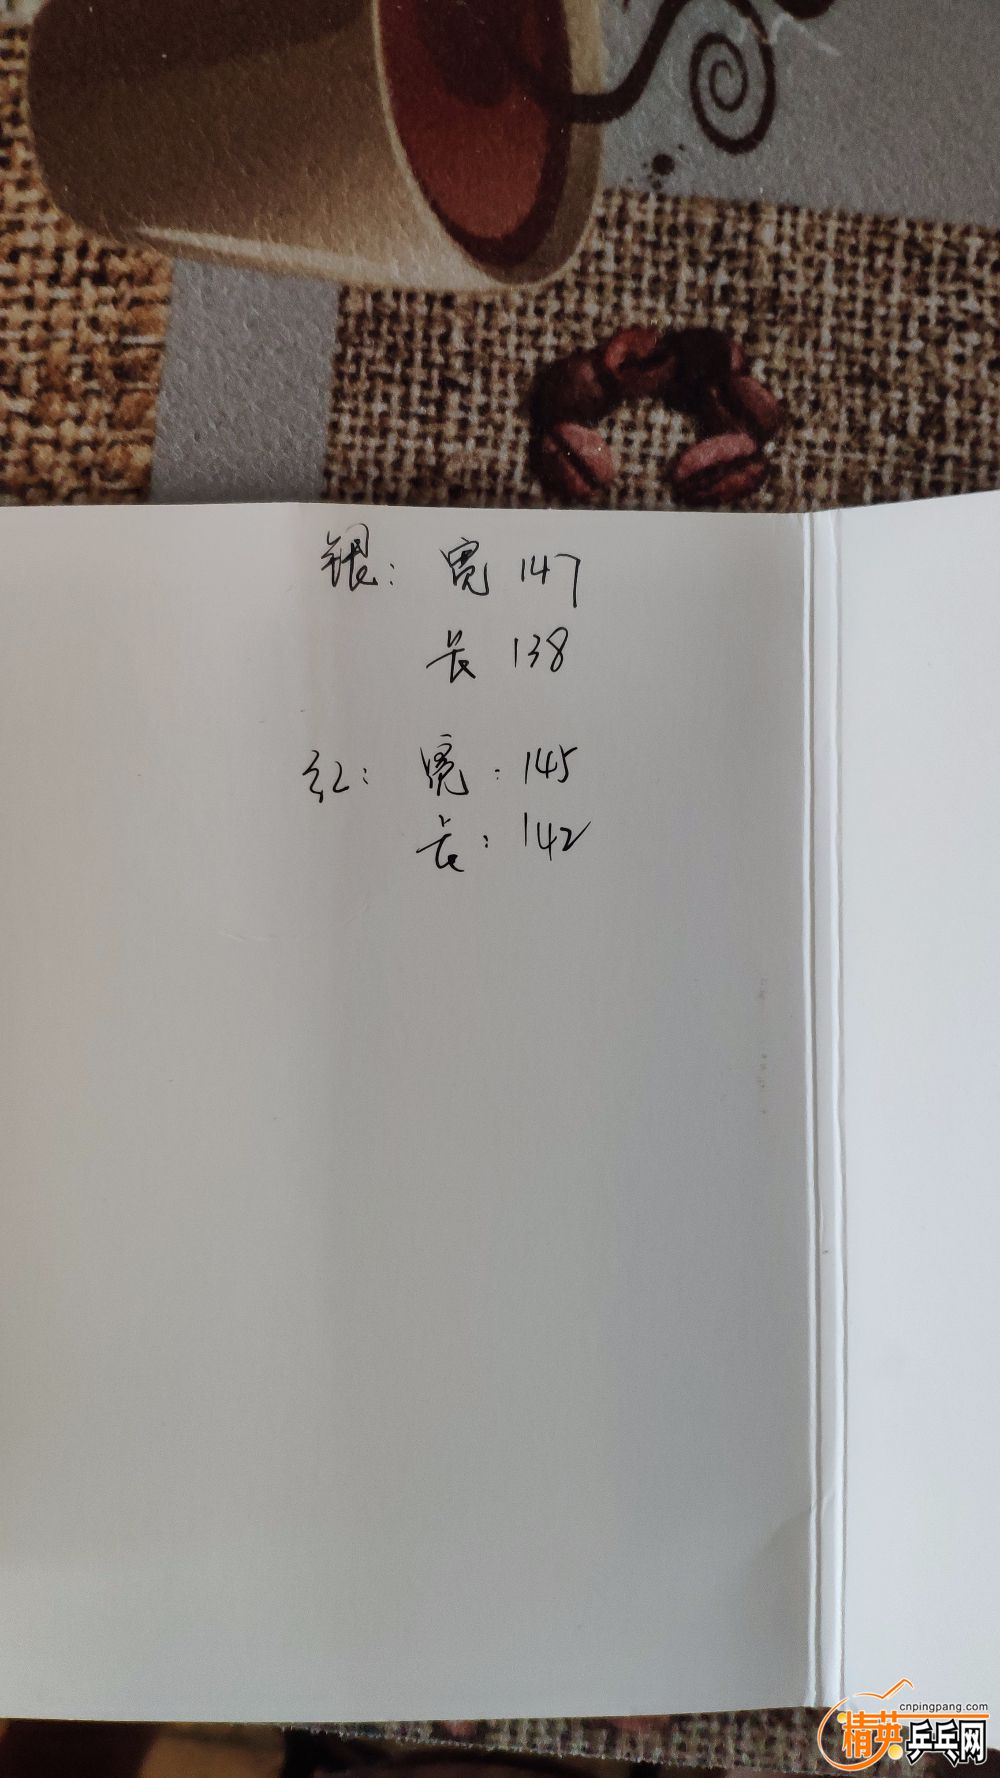 银: 宽 147
长 138
红: 宽: 145
长: 142
cnpingpang.com
精英乒乓网